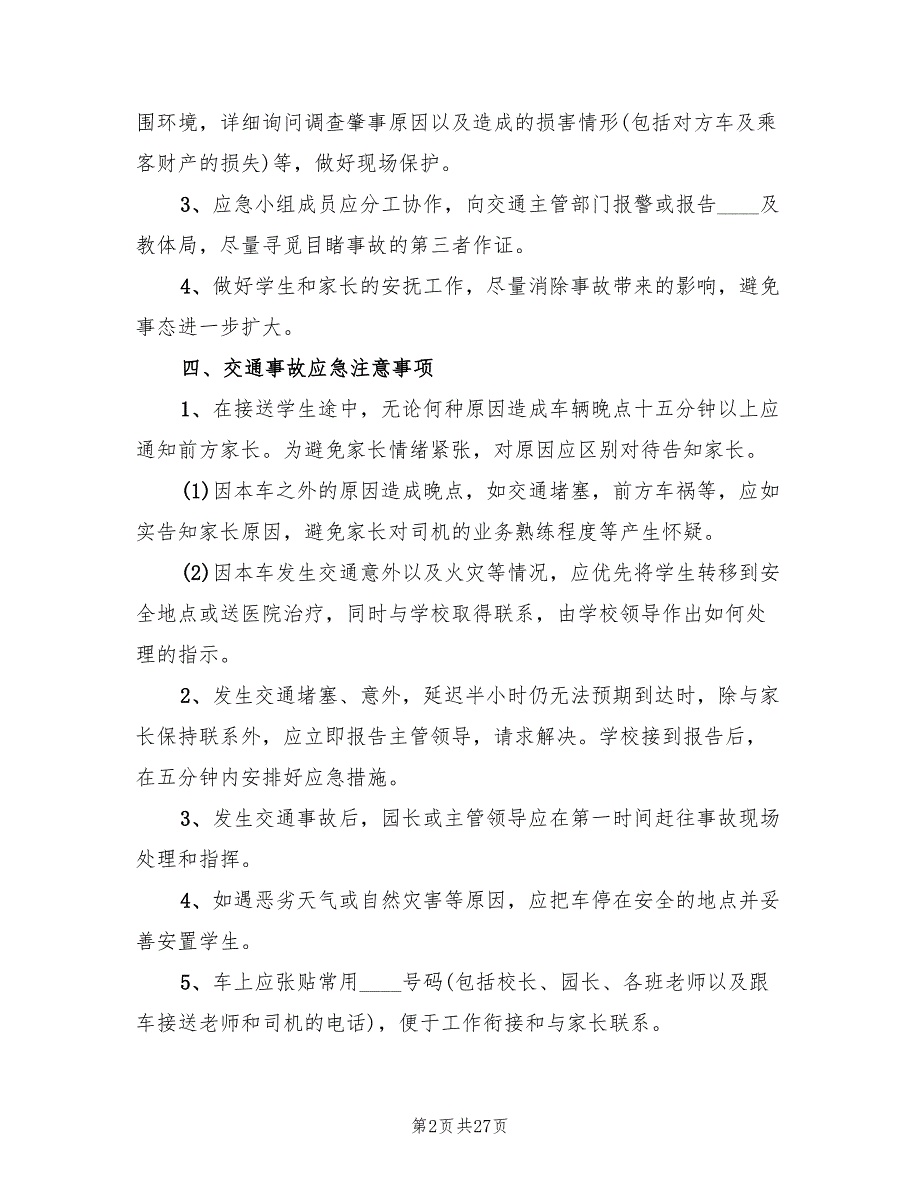 围环境，详细询问调查肇事原因以及造成的损害情形(包括对方车及乘
客财产的损失)等，做好现场保护。
3、应急小组成员应分工协作，向交通主管部门报警或报告____及
教体局，尽量寻觅目睹事故的第三者作证。
4、做好学生和家长的安抚工作，尽量消除事故带来的影响，避免
事态进一步扩大。
四、交通事故应急注意事项
1、在接送学生途中，无论何种原因造成车辆晚点十五分钟以上应
通知前方家长。为避免家长情绪紧张，对原因应区别对待告知家长。
(1)因本车之外的原因造成晚点，如交通堵塞，前方车祸等，应如
实告知家长原因，避免家长对司机的业务熟练程度等产生怀疑。
(2)因本车发生交通意外以及火灾等情况，应优先将学生转移到安
全地点或送医院治疗，同时与学校取得联系，由学校领导作出如何处
理的指示。
2、发生交通堵塞、意外，延迟半小时仍无法预期到达时，除与家
长保持联系外，应立即报告主管领导，请求解决。学校接到报告后，
在五分钟内安排好应急措施。
3、发生交通事故后，园长或主管领导应在第一时间赶往事故现场
处理和指挥。
4、如遇恶劣天气或自然灾害等原因，应把车停在安全的地点并妥
善安置学生。
5、车上应张贴常用____号码(包括校长、园长、各班老师以及跟
车接送老师和司机的电话)，便于工作衔接和与家长联系。
第2页共27页